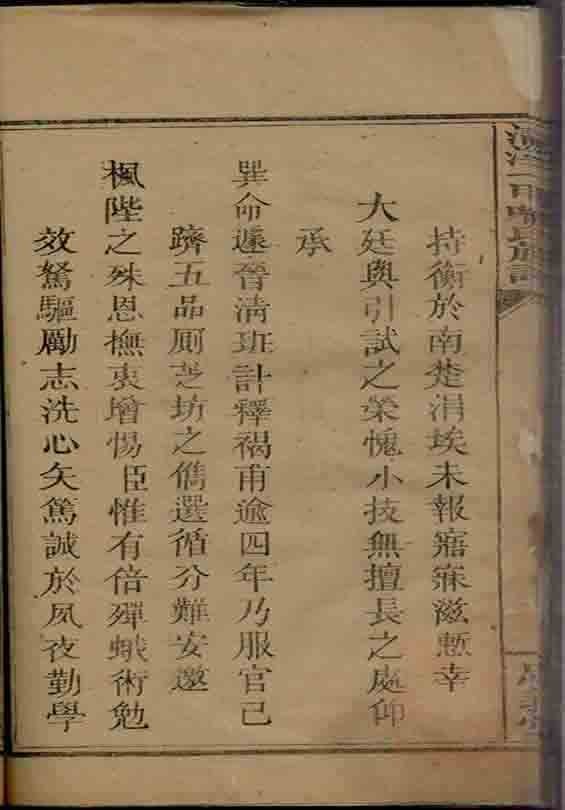 持衡於南楚涓埃未報寤寐滋慙幸
大廷與引試之榮愧小技無擅長之處仰
承
巽命遽晉清班計釋褐甫逾四年乃服官已
躋五品厠芝坊之儁選循分難安邀
楓陛之殊恩撫衷增惕臣惟有倍殫蛾術勉
效駑驅勵志洗心矢篤誠於夙夜勤學